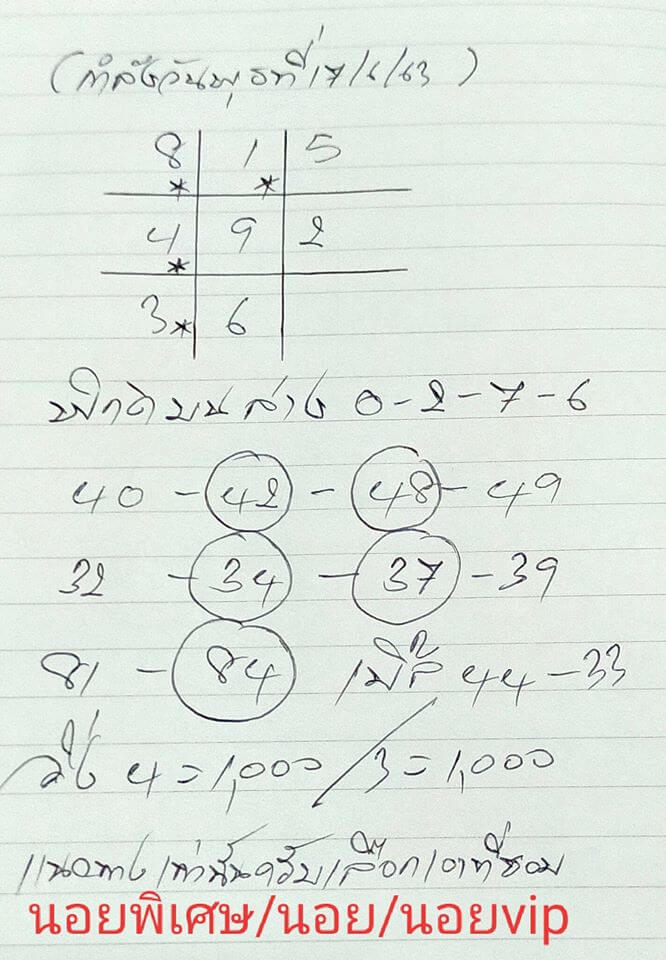 (กำลังวันพุธที่ 17/6/63)
8 1 5
* *
4 9 2
*
3* 6
บน ล่าง 0-2-7-6
40 - 42 - 48 - 49
32 - 34 - 37 - 39
81 - 84 เบิ้ล 44-33
วิ่ง 4=1,000/3=1,000
แนวทางเท่านั้นครับเลือกเอาที่ชอบ
นอยพิเศษ/นอย/นอยvip